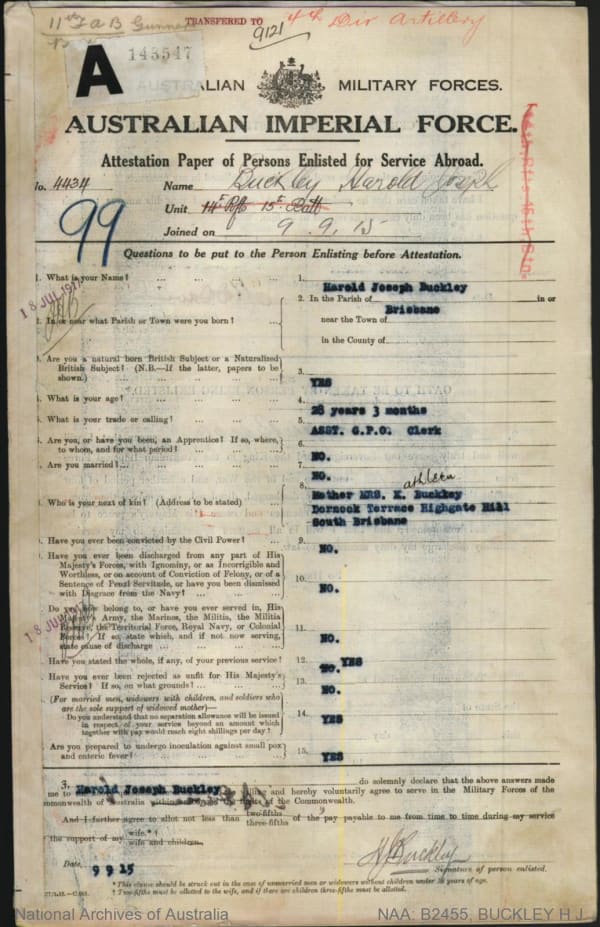 11th F A B Gunner
TRANSFERED TO 4th Div Artillery
9121
A
143547
AUSTRALIAN MILITARY FORCES.
AUSTRALIAN IMPERIAL FORCE.
Attestation Paper of Persons Enlisted for Service Abroad.
No. 4434 Name Buckley Harold Joseph
Unit 14th Rfts 15th Batt
Joined on 9. 9. 15
99
Questions to be put to the Person Enlisting before Attestation.
1. What is your Name? ... ... ... 1. Harold Joseph Buckley
18 JUL 1917
2. In or near what Parish or Town were you born? ... 2. In the Parish of Brisbane in or
near the Town of
in the County of
3. Are you a natural born British Subject or a Naturalized
British Subject? (N.B.—If the latter, papers to be
shown.) ... ... ... 3. YES
4. What is your age? ... ... ... 4. 28 years 3 months
5. What is your trade or calling? ... ... ... 5. ASST. G.P.O. Clerk
6. Are you, or have you been, an Apprentice? If so, where,
to whom, and for what period? ... ... ... 6. NO.
7. Are you married? ... ... ... ... 7. NO.
8. Who is your next of kin? (Address to be stated) ... 8. Mother MRS. K. athleen Buckkey
Dornock Terrace Highgate Hill
South Brisbane
9. Have you ever been convicted by the Civil Power? ... 9. NO.
Have you ever been discharged from any part of His
Majesty's Forces, with Ignominy, or as Incorrigible and
Worthless, or on account of Conviction of Felony, or of a
Sentence of Penal Servitude, or have you been dismissed
with Disgrace from the Navy? ... ... 10. NO.
18 JUL 1917
Do you now belong to, or have you ever served in, His
Majesty's Army, the Marines, the Militia, the Militia
Reserve, the Territorial Force, Royal Navy, or Colonial
Forces? If so, state which, and if not now serving,
state cause of discharge ... ... ... 11. NO.
Have you stated the whole, if any, of your previous service? 12. YES
Have you ever been rejected as unfit for His Majesty's
Service? If so, on what grounds? ... ... ... 13. NO.
(For married men, widowers with children, and soldiers who
are the sole support of widowed mother)—
Do you understand that no separation allowance will be issued
in respect of your service beyond an amount which
together with pay would reach eight shillings per day? 14. YES
Are you prepared to undergo inoculation against small pox
and enteric fever? ... ... ... ... 15. YES
3. Harold Joseph Buckley do solemnly declare that the above answers made
me to and hereby voluntarily agree to serve in the Military Forces of the
Commonwealth of Australia within of the Commonwealth.
And I further agree to allot not less than two-fifths three-fifths of the pay payable to me from time to time during my service
the support of my wife.*† wife and children.
HJBuckley
Signature of person enlisted.
Date, 9 9 15
* This clause should be struck out in the case of unmarried men or widowers without children under 18 years of age.
† Two-fifths must be allotted to the wife, and if there are children three-fifths must be allotted.
National Archives of Australia NAA: B2455, BUCKLEY H J